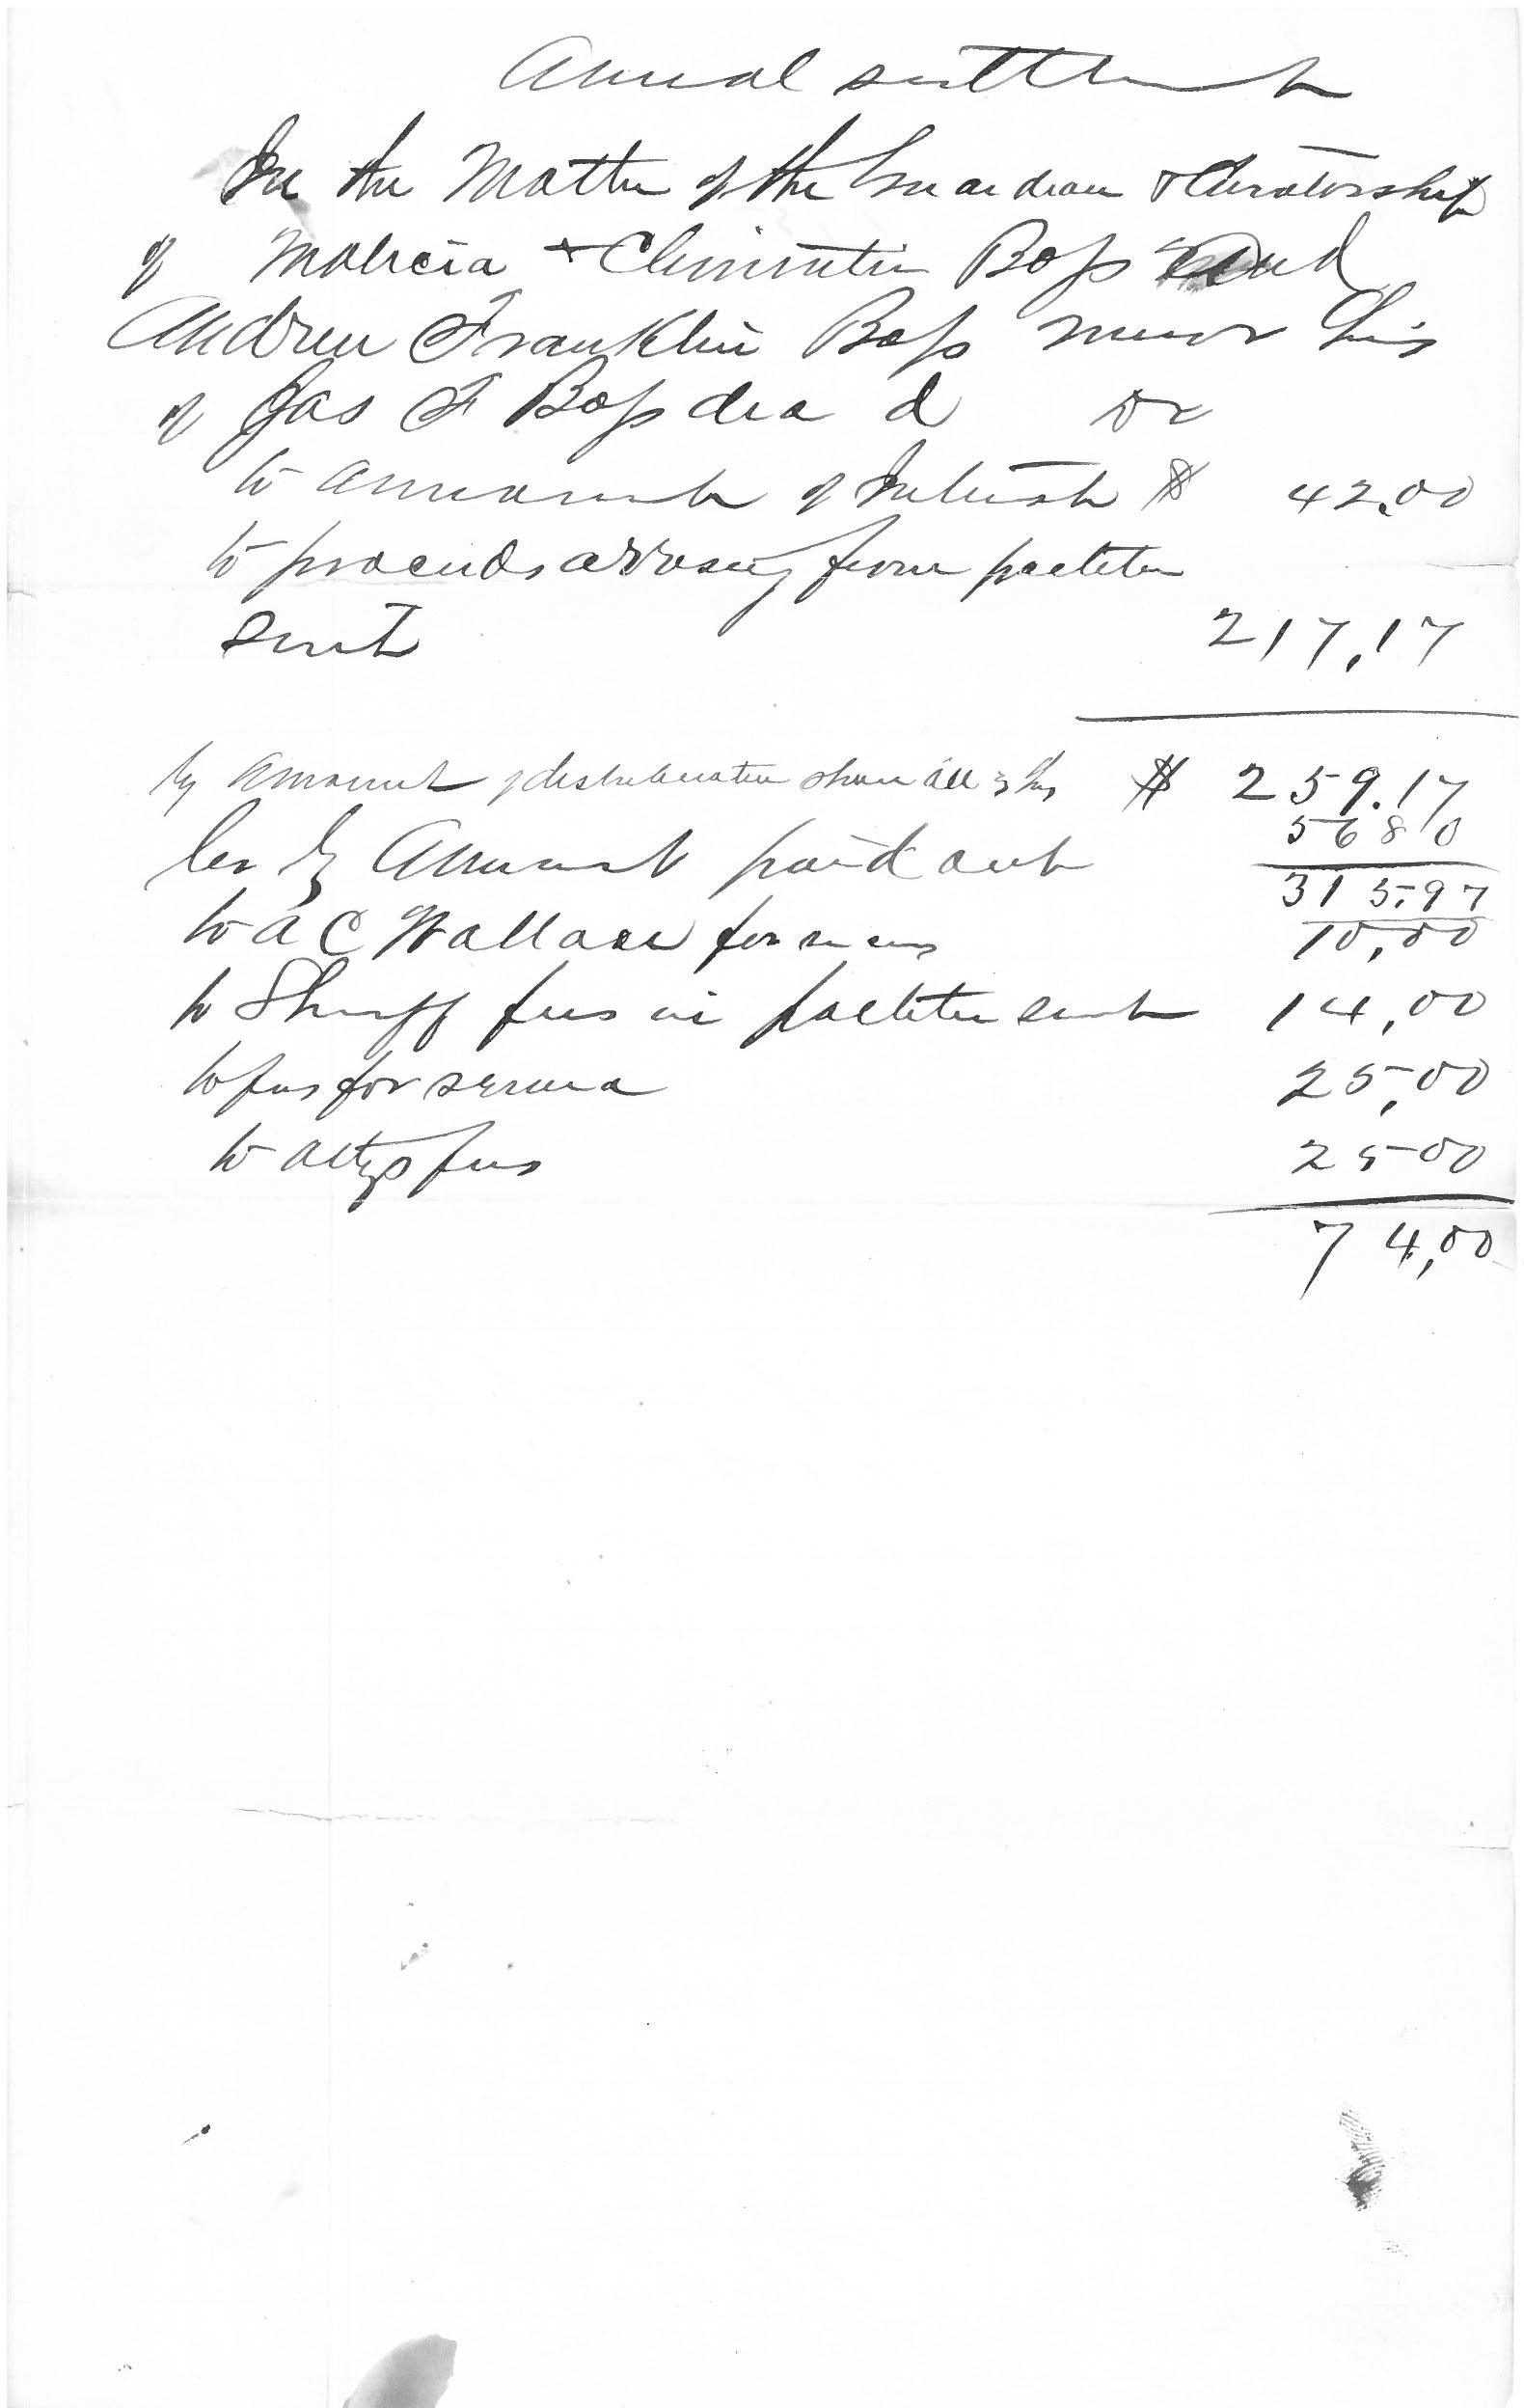 Annual settlement
In the Matter of the Guardian & Curatorship
of Malicia & Climintin Bass and
Andrew Franklin Bass minor heirs
of Jas F Bass dead Dr
to ammount of Interest $ 42.00
to proceeds arrosing from partition
suit 217,17
by amount of distributive share all 3 $ 259.17
56 80
Cr By Ammount paid out 315.97
to A C Wallace for 10,00
to Sheriff fees in partition suit 14,00
to fees for 25,00
to attys fees 25 00
74,00